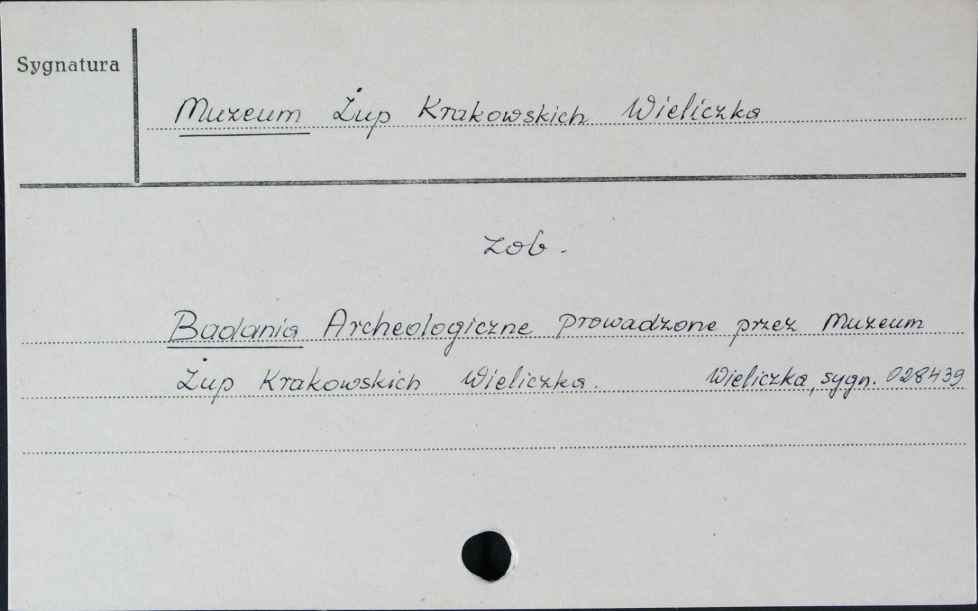 Sygnatura
Muzeum Żup Krakowskich Wieliczka
zob.
Badania Archeologiczne prowadzone przez Muzeum
Żup Krakowskich Wieliczka. Wieliczka, sygn. 028439